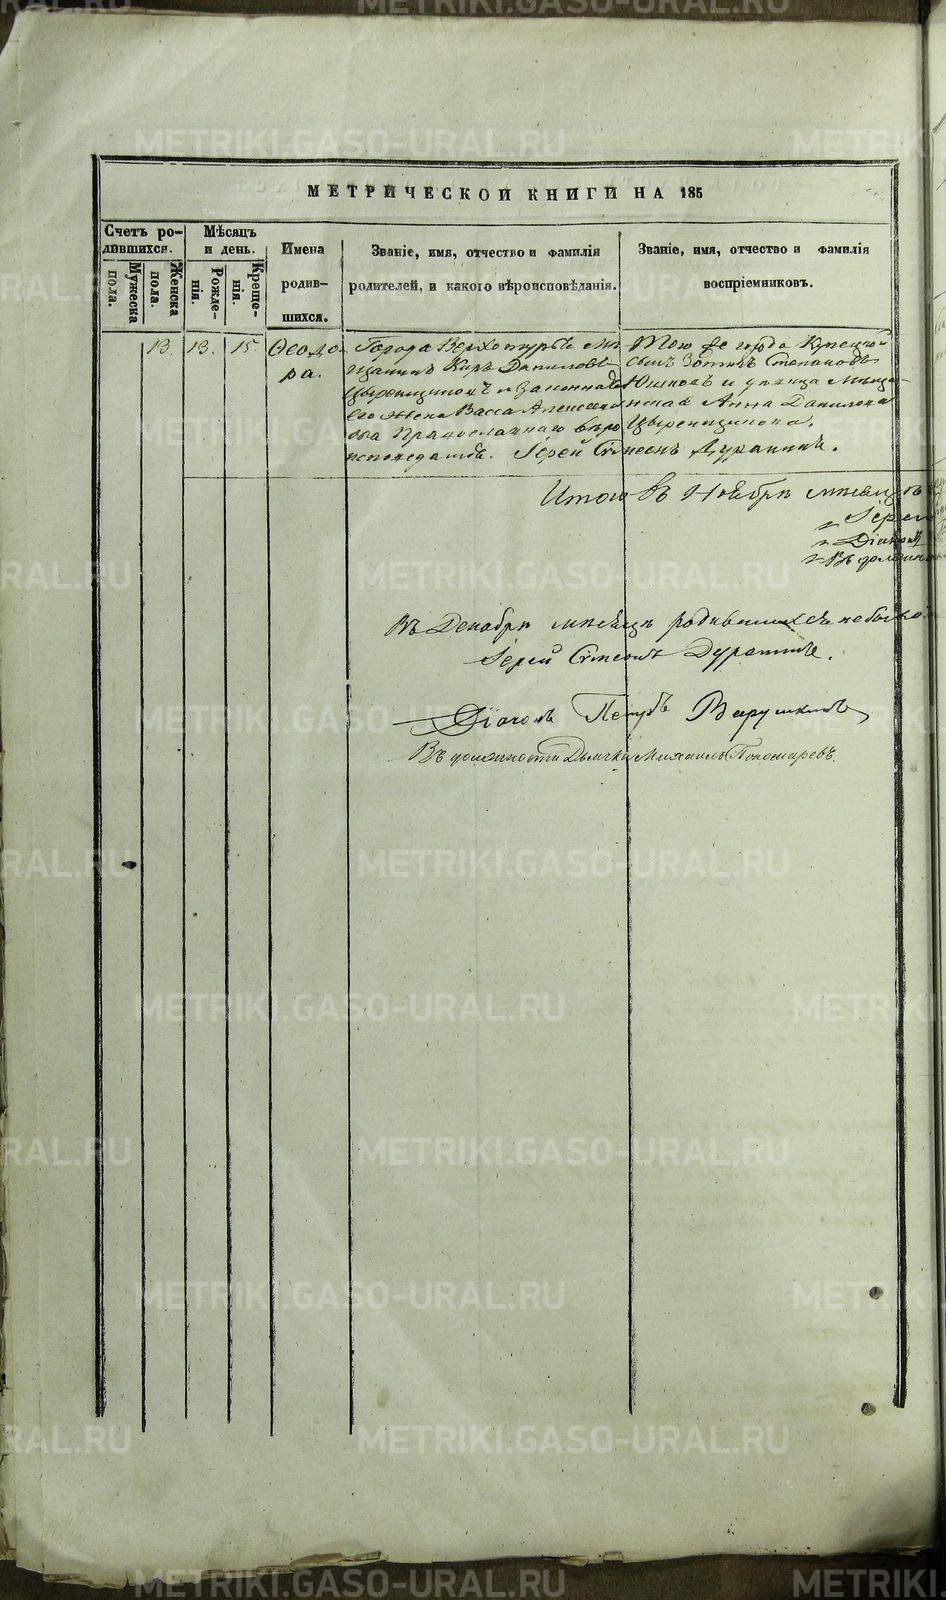 МЕТРИЧЕСКОЙ КНИГИ НА 185
Счетъ ро-
дившихся.
Мужеска
пола.
Женска
пола.
Мѣсяцъ
и день.
Рожде-
нія.
Креще-
нія.
Имена
родив-
шихся.
Званіе, имя, отчество и фамилія
родителей, и какого вѣроисповѣданія.
Званіе, имя, отчество и фамилія
воспріемниковъ.
13. 13. 15.
Ѳеодо-
ра.
Города Верхотурья мѣ-
щанинъ Киръ Даниловъ
и законная
его жена Васса Алексѣе-
ва Православнаго вѣро
исповеданія.
Того же города
сынъ Зотикъ Степановъ
Юшковъ и девица мѣща-
нская Анна Данилова
Іерей Симеонъ
Итого въ Ноябрѣ мѣсяцѣ
Іерей
Діаконъ
Въ должнос
Въ Декабрѣ мѣсяцѣ родившихся небыло.
Іерей Симеонъ
Діаконъ Петръ
Въ должности Дьячка Михаилъ Пономаревъ.
METRIKI.GASO-URAL.RU